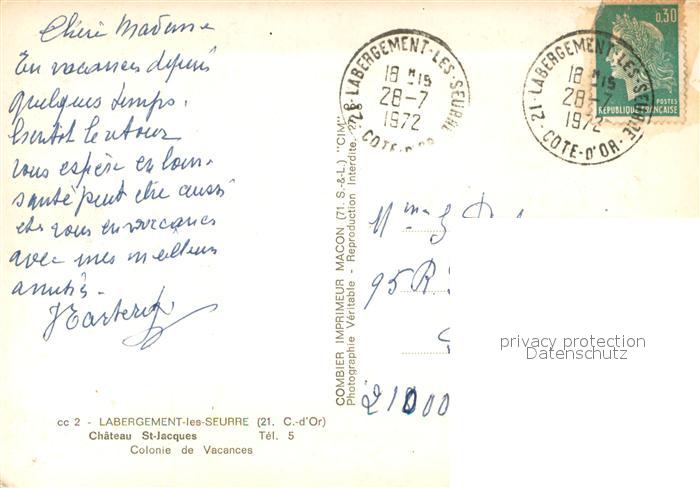 Chère Madame
En vacances depuis
quelques temps.
bientôt le retour
vous espère en bonne
santé peut être aussi
etes vous en vacances
avec mes meilleurs
amitiés.
cc 2 - LABERGEMENT-les-SEURRE (21. C.-d'Or)
Château St-Jacques Tél. 5
Colonie de Vacances
COMBIER IMPRIMEUR MACON (71. S.-&-L.) "CIM"
Photographie Véritable - Reproduction Interdite.
21-LABERGEMENT-LES-SEURRE
18 H 15
28-7
1972
COTE-D'OR
21-LABERGEMENT-LES-SEURRE
18 H 15
28-7
1972
COTE-D'OR
0,30
POSTES
REPUBLIQUE FRANÇAISE
Mme
95 R.
21000
privacy protection
Datenschutz